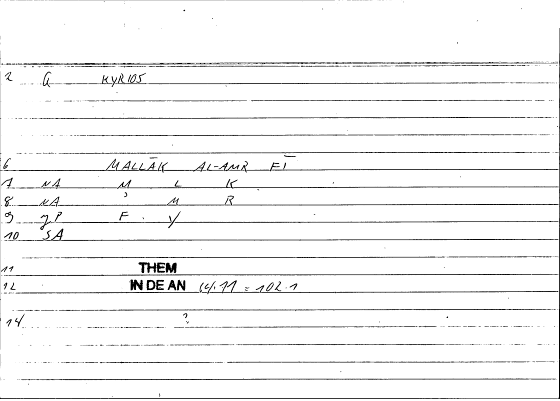 2 G KYRIOS
6 MALLĀK AL-AMR FĪ
7 NA M L K
8 NA ʾ M R
9 gP F Y
10 SA
11 THEM
12 IN DE AN 14.11 = 102.1
14 ?